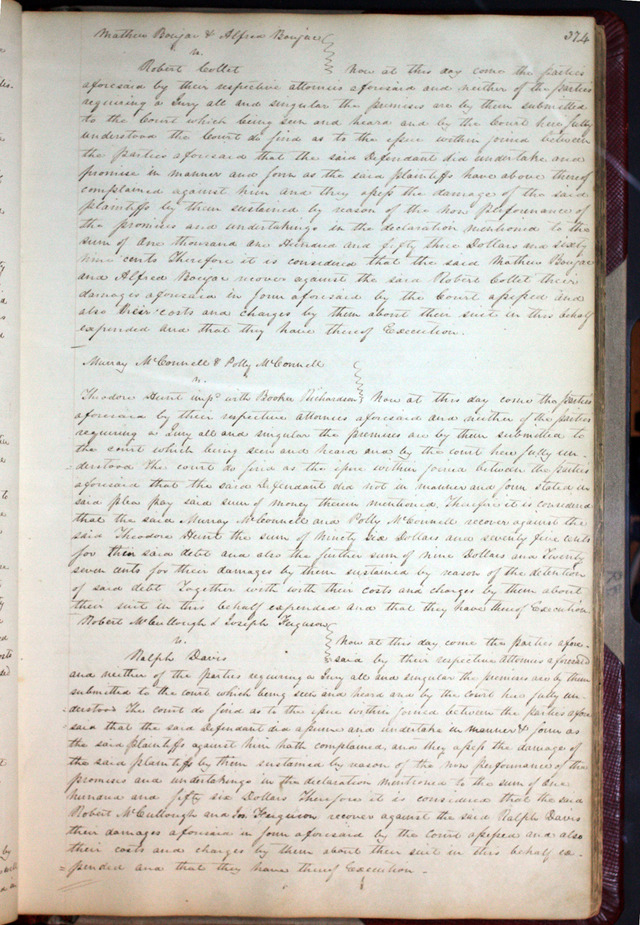 374
Mathew Boujac & Alfred Boujac
vs.
Robert Collet Now at this day come the parties
aforesaid by their respective attornies aforesaid and neither of the parties
requiring a Jury all and singular the premises are by them submitted
to the Court which being seen and heard and by the Court here fully
understood the Court do find as to the issue within joined between
the parties aforesaid that the said Defendant did undertake and
promise in manner and form as the said plaintiffs have above thereof
complained against him and they assess the damage of the said
plaintiffs by them sustained by reason of the non performance of
the promises and undertakings in the declaration mentioned to the
sum of one thousand one Hundred and fifty three Dollars and sixty
nine cents Therefore it is considered that the said Mathew Boujac
and Alfred Boujac recover against the said Robert Collet their
damages aforesaid in form aforesaid by the Court assessed and
also their costs and charges by them about their suit in this behalf
expended and that they have thereof Execution.
Murray McConnell & Polly McConnell
vs.
Theodore Hunt impd with Booker Richardson Now at this day come the parties
aforesaid by their respective attornies aforesaid and neither of the parties
requiring a Jury all and singular the premises are by them submitted to
the court which being seen and heard and by the court here fully un-
derstood the court do find as to the issue within joined between the parties
aforesaid that the said Defendant did not in manner and form stated in
said plea pay said sum of money therein mentioned, Therefore it is considered
that the said Murray McConnell and Polly McConnell recover against the
said Theodore Hunt the sum of Ninety Six Dollars and seventy five cents
for their said debt and also the further sum of nine Dollars and Twenty
seven cents for their damages by them sustained by reason of the detention
of said debt Together with with their costs and charges by them about
their suit in this behalf expended and that they have thereof Execution
Robert McCullough & Joseph Ferguson
vs.
Ralph Davis Now at this day come the parties afore-
said by their respective Attornies aforesaid
and neither of the parties requiring a Jury all and singular the premises are by them
submitted to the court which being seen and heard and by the court here fully un-
derstood The court do find as to the issue within joined between the parties afore
said that the said Defendant did assume and undertake in manner & form as
the said plaintiffs against him hath complained, and they assess the damage of
the said plaintiffs by them sustained by reason of the non performance of the
promises and undertakings in the declaration mentioned to the sum of one
hundred and fifty six Dollars Therefore it is considered that the said
Robert McCullough and Jos. Ferguson recover against the said Ralph Davis
their damages aforesaid in form aforesaid by the Court assessed and also
their costs and charges by them about their suit in this behalf ex-
pended and that they have thereof Execution -